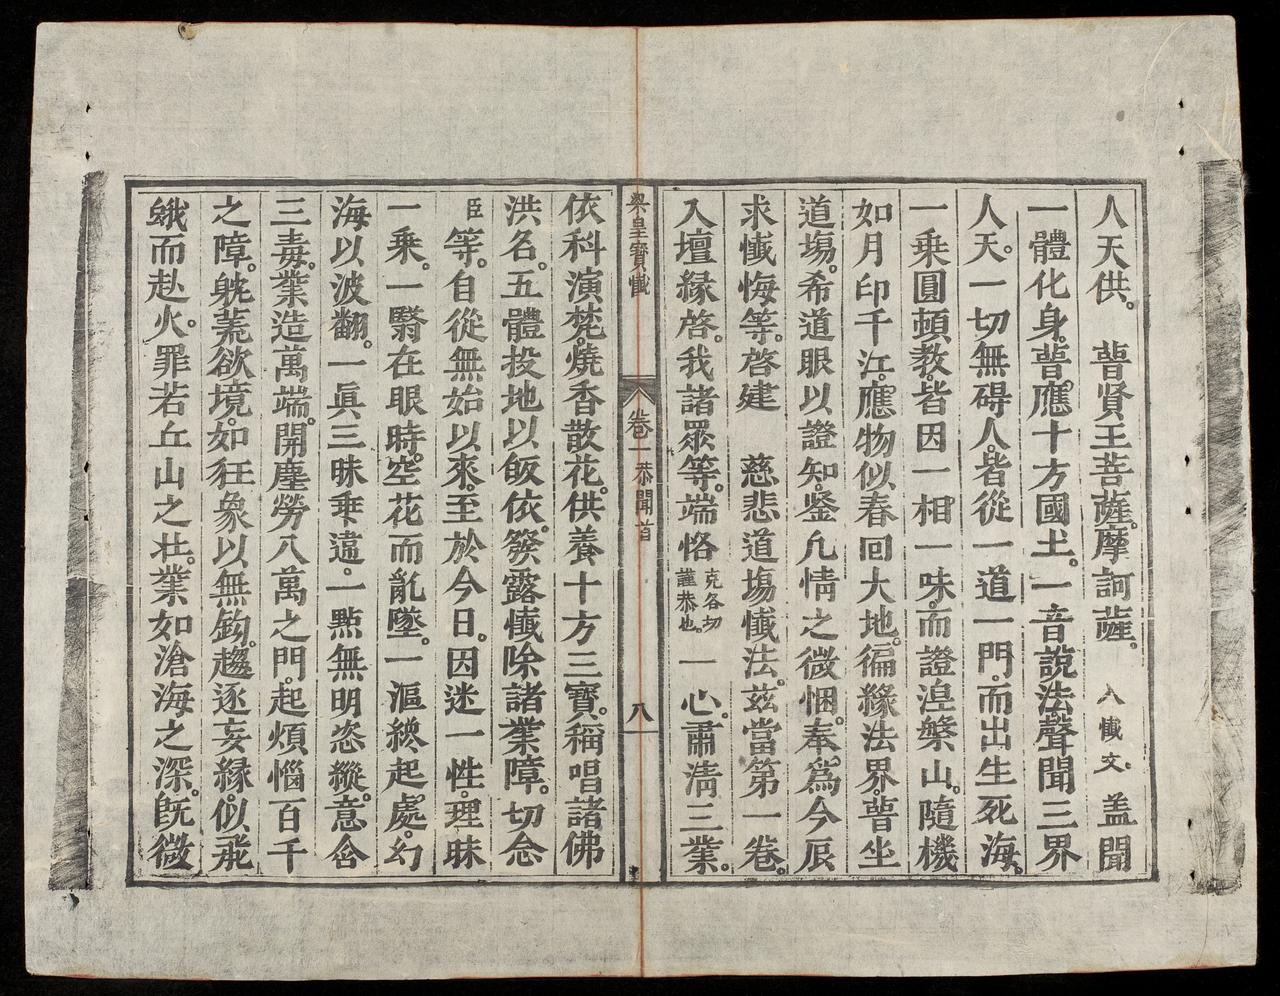 人天供。 普賢王菩薩。摩訶薩。 入懺文。盖聞
一體化身。普應十方國土。一音說法。聲聞三界
人天。一切無碍人。皆從一道一門。而出生死海。
一乘圓頓教。皆因一相一味。而證湼槃山。隨機
如月印千江。應物似春回大地。徧緣法界。普坐
道塲。希道眼以證知。鉴凡情之微悃。奉為今辰
求懺悔等。啓建 慈悲道塲懺法。茲當第一卷。
入壇緣啓。我諸眾等。端恪克各切謹恭也。一心。肅淸三業。
梁皇寶懺 卷一 恭聞首 八
依科演梵。燒香散花。供養十方三寶。稱唱諸佛
洪名。五體投地以皈依。發露懺除諸業障。切念
臣等。自從無始以來。至於今日。因迷一性。理昧
一乘。一翳在眼時。空花而亂墜。一漚纔起處。幻
海以波翻。一眞三昧乗違。一點無明恣縱。意含
三毒。業造萬端。開塵勞八萬之門。起煩惱百千
之障。躭荒欲境。如狂象以無鈎。趨逐妄緣。似飛
蛾而赴火。罪若丘山之壮。業如滄海之深。旣微